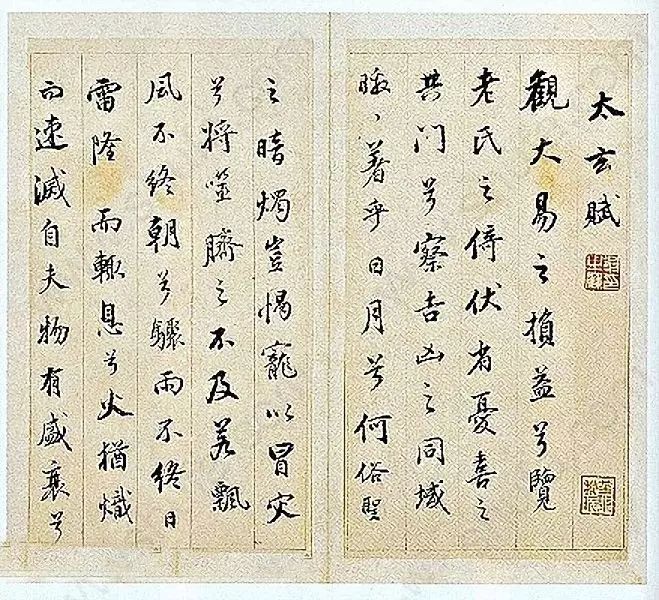 太玄賦
觀大易之損益兮覽
老氏之倚伏省憂喜之
共门兮察吉凶之同域
曒〻著乎日月兮何俗聖
之暗燭豈愒寵以冒灾
兮將噬臍之不及若飄
風不終朝兮驟雨不終日
雷隆而輒息兮火猶熾
而速滅自夫物有盛衰兮